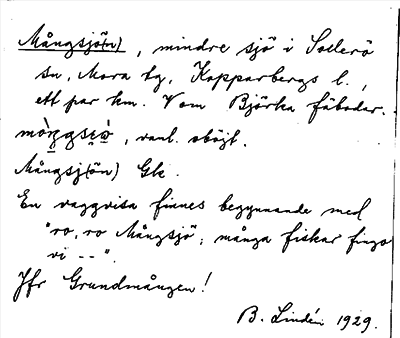 Mångsjö(n), mindre sjö i Sollerö
sn, Mora tg, Kopparbergs l.,
ett par km. V om Björka fäbodar.
mòŋgsɛ̨ὼ, vanl. oböjt.
Mångsj(ön) Glk.
En vaggvisa finnes begynnande med
"ro, ro Mångsjö, många fiskar fingo
vi --".
Jfr Grundmången!
B. Lindén 1929.